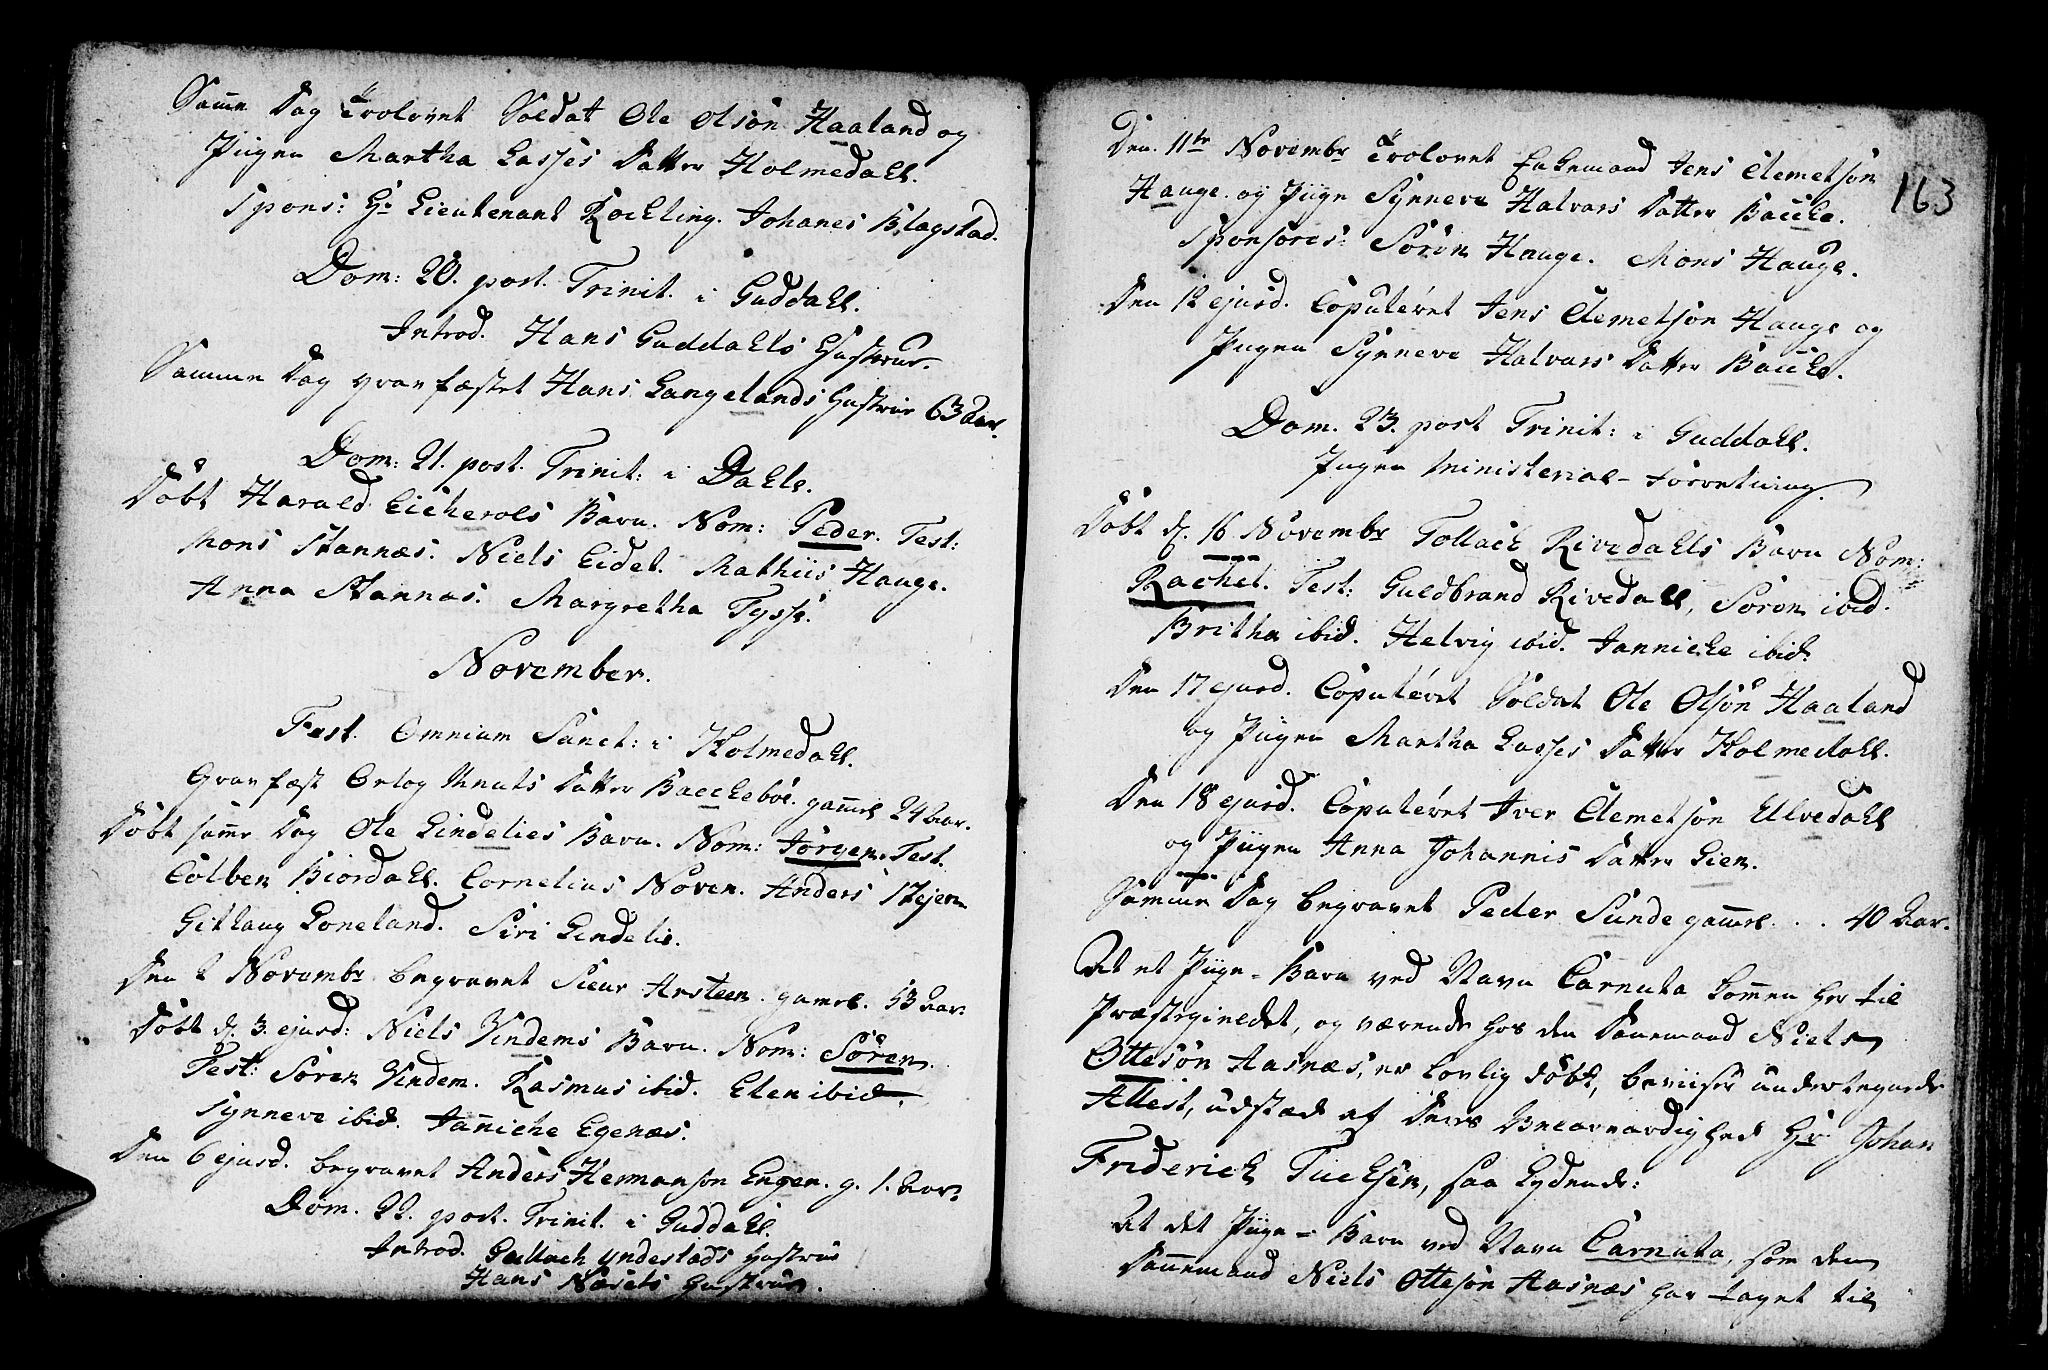 Samme Dag Trolovet Soldat Ole Olsøn Haaland og
Pigen Martha Lasses Datter Holmedahl.
Spons: Hr Lieutenant Kochling. Johanes Blagstad.
Dom: 20. post. Trinit. i Guddahl.
Introd. Hans Guddahls Hustrue.
Samme Dag gravfæstet Hans Langelands Hustrue 63 Aar.
Dom: 21. post. Trinit: i Dahle.
Døbt Harald Eicherols Barn. Nom: Peder. Test:
Mons Stannæs. Niels Eidet. Mathiis Hauge.
Anna Stannas. Margretha Tysse.
November.
Fest. Omnium Sanct: i Holmedahl.
Gravfæst Ortog Knuts Datter Bacchebøe. gammel 24 Aar.
Døbt samme Dag Ole Lindelies Barn. Nom: Jørgen. Test.
Colben Biordahl. Cornelius Noven. Anders
Githaug Loneland. Siri Lindelie.
Den 2 Novembr begravet Sieur Arsteen. gamel. 53 Aar.
Døbt d. 3. ejusd: Niels Vindems Barn. Nom: Søren.
Test: Søren Vindem. Rasmus ibid. Elen ibid.
Synneve ibid. Janniche Egenæs.
Den 6 ejusd. begravet Anders Hermansøn Engen. g. 1. Aar.
Dom. 22. post. Trinit. i Guddahl.
Introd. Gullach Yndestads Hustrue
Hans Næsets Hustrue.
163
Den. 11te Novembr Trolovet Enkemand Jens Clemetsøn
Hauge. og Pigen Synneve Halvars Datter Bacche.
Sponsores: Søren Hauge. Mons Hauge.
Den 12 ejusd. Copuleret Jens Clemetsøn Hauge og
Pigen Synneve Halvars Datter Bacche.
Dom. 23. post Trinit: i Guddahl.
Ingen Ministerial-Forretning.
Døbt d. 16 Novembr Tollach Rivedahls Barn Nom:
Rachel. Test: Guldbrand Rivedahl, Søren ibid.
Britha ibid. Helvig ibid. Janniche ibid:
Den 17 ejusd. Copuleret Soldat Ole Olsøn Haaland
og Pigen Martha Lasses Datter Holmedahl.
Den 18 ejusd. Copuleret Iver Clemetsøn Ulvedahl
og Piigen Anna Johannis Datter Lien.
Samme Dag begravet Peder Sunde gammel . . . 40 Aar.
At et Piige-Barn ved Navn Carnuta kommen her til
Præstegieldet, og værende hos den Danemand Niels
Ottesøn Aasnæs, er lovlig døbt, beviiser undertegnede
Attest, udstæd af Deres Velærværdighed Hr. Johan
Friderich Tuchsen, saa lydende:
At det Piige-Barn ved Navn Carnuta, som den
Dannemand Niels Ottesøn Aasnæs har taget til